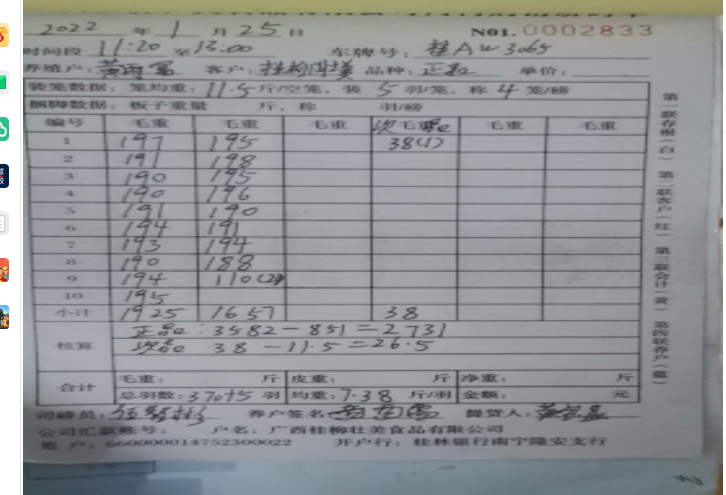 2022 年 1 月 25 日 N01. 0002833
时间段 11:20 至 13:00 车牌号: 桂A
养殖户: 客户: 品种: 正品 单价:
装笼数据: 笼均重: 11.5 斤/空笼, 装 5 羽/笼, 称 4 笼/磅
捆脚数据: 板子重量 斤, 称 羽/磅
编号 毛重 毛重 毛重 次 毛重 毛重 毛重
1 197 195 38(1)
2 191 198
3 190 195
4 190 196
5 191 190
6 194 191
7 193 194
8 190 188
9 194 110(2)
10 195
小计 1925 1657 38
核算 正品: 3582-851=2731
次品 38-11.5=26.5
合计 毛重: 斤 皮重: 斤 净重: 斤
总羽数: 370+5 羽 均重: 7.38 斤/羽 金额: 元
司磅员: 养户签名: 提货人:
公司汇款账号: 户名: 广西桂柳壮美食品有限公司
账户: 660000014752300022 开户行: 桂林银行南宁隆安支行
第一联存根(白)
第二联客户(红)
第三联会计(黄)
第四联养户(蓝)